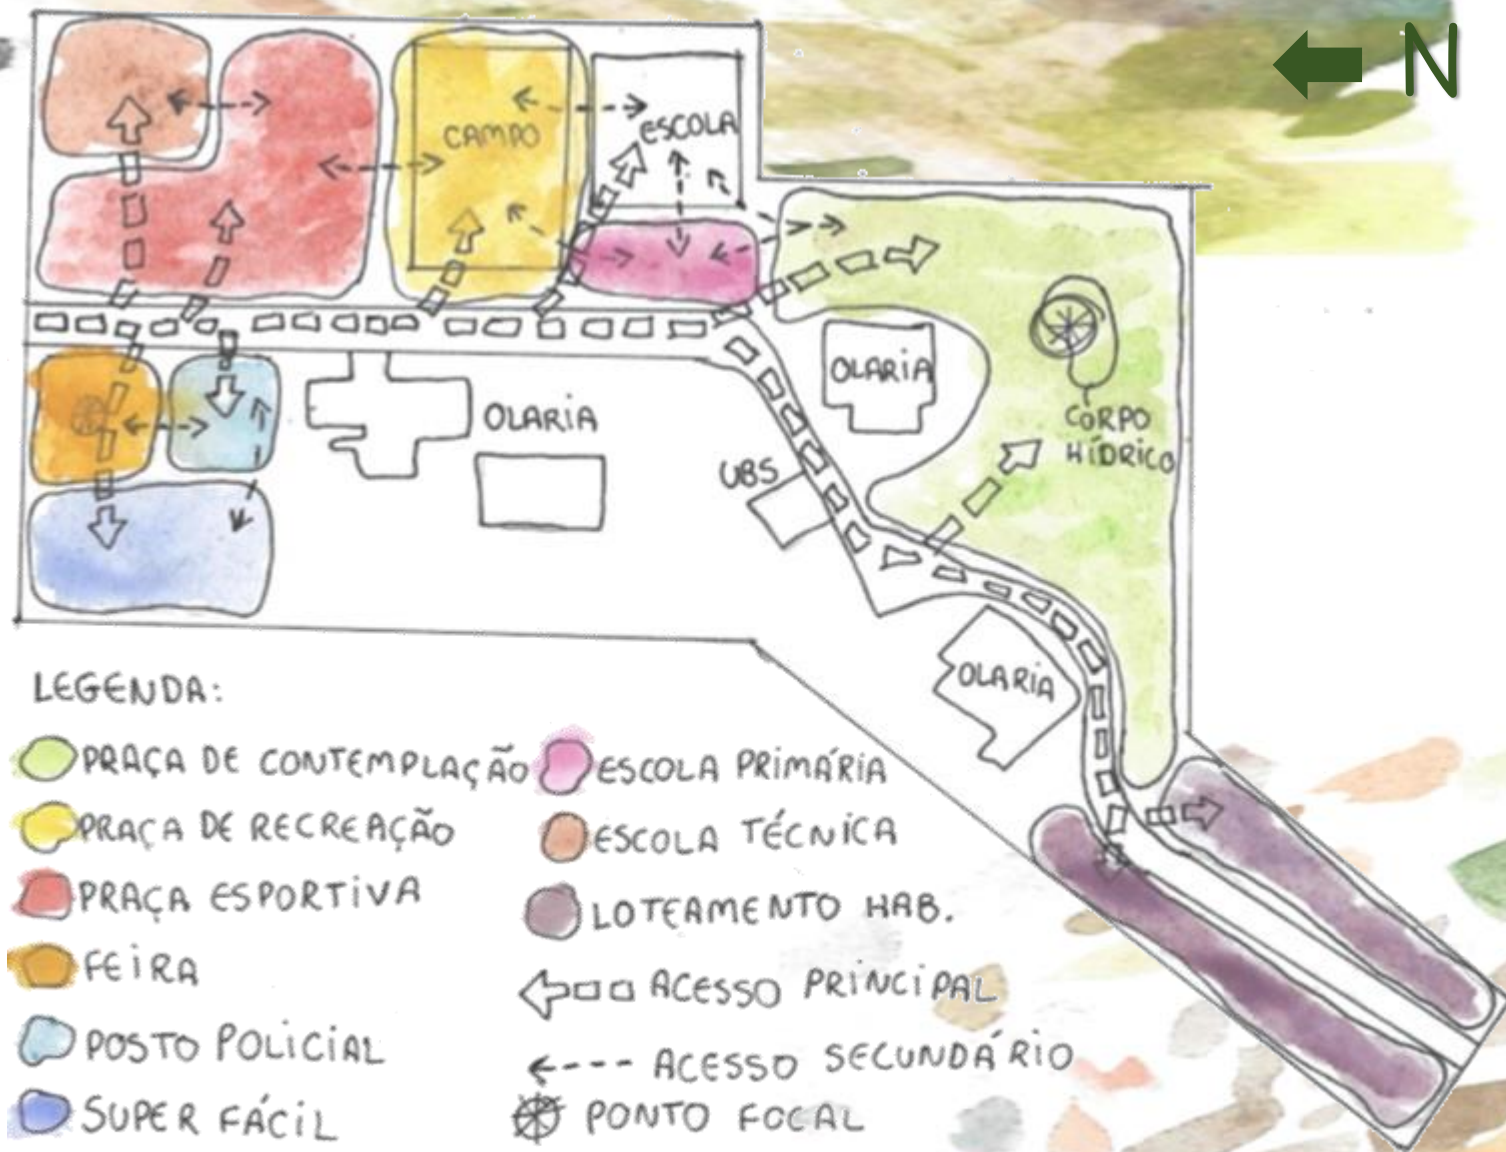 N
CAMPO
ESCOLA
OLARIA
CORPO
HÍDRICO
OLARIA
UBS
OLARIA
LEGENDA:
PRAÇA DE CONTEMPLAÇÃO
PRAÇA DE RECREAÇÃO
PRAÇA ESPORTIVA
FEIRA
POSTO POLICIAL
SUPER FÁCIL
ESCOLA PRIMÁRIA
ESCOLA TÉCNICA
LOTEAMENTO HAB.
ACESSO PRINCIPAL
ACESSO SECUNDÁRIO
PONTO FOCAL